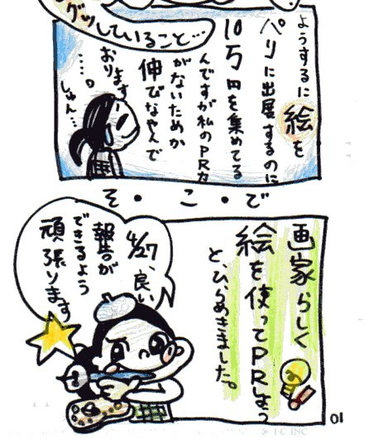 グッしていること…
ようするに絵を
パリに出展するのに
10万円を集めてる
んですが私のPR力
がないためか
伸びなやんで
おります
……。
しゅん…
そ・こ・で
画家らしく
絵を使ってPRしよう
と、ひらめきました。
4/27、良い
報告が
できるよう
頑張ります
01